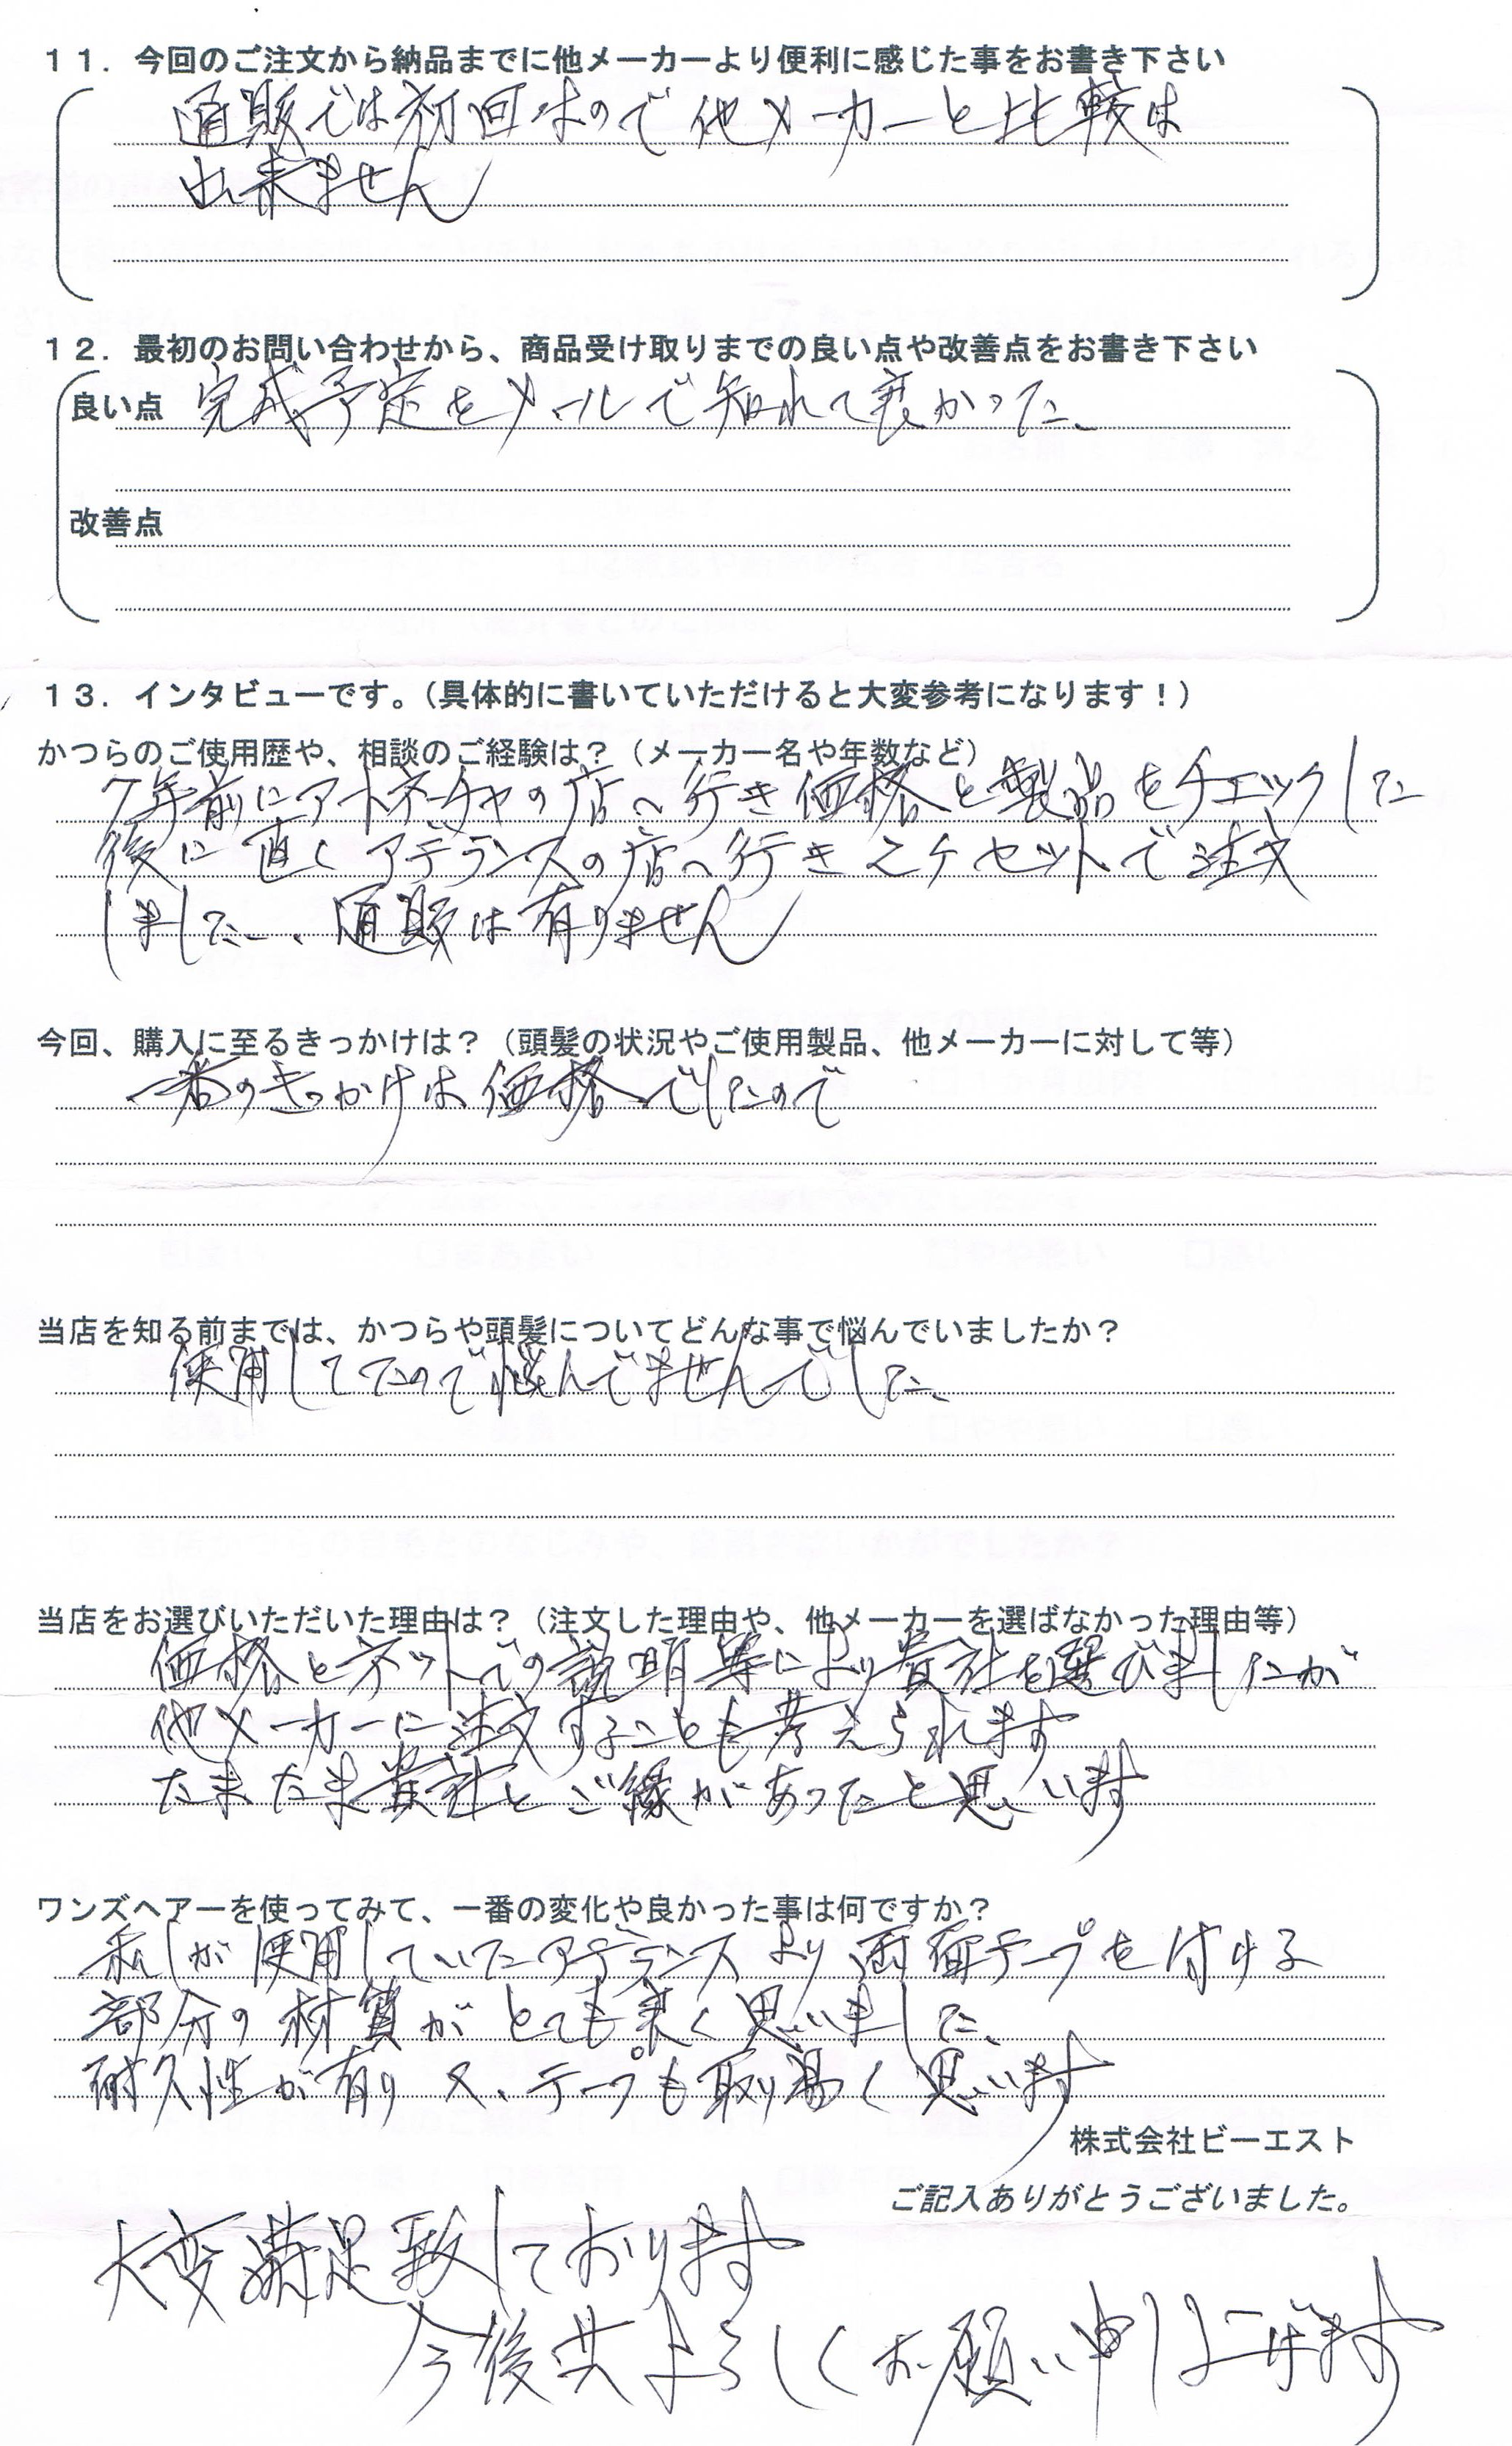 11．今回のご注文から納品までに他メーカーより便利に感じた事をお書き下さい
通販では初回なので他メーカーと比較は
出来ません
12．最初のお問い合わせから、商品受け取りまでの良い点や改善点をお書き下さい
良い点 完成予定をメールで知れて良かった、
改善点
13．インタビューです。（具体的に書いていただけると大変参考になります！）
かつらのご使用歴や、相談のご経験は？（メーカー名や年数など）
7年前にアートネーチャの店へ行き価格と製品をチェックした
後に直ぐアデランスの店へ行き2ケセットで注文
しました、通販は有りません
今回、購入に至るきっかけは？（頭髪の状況やご使用製品、他メーカーに対して等）
一番のきっかけは価格でしたので
当店を知る前までは、かつらや頭髪についてどんな事で悩んでいましたか？
使用してたので悩んでませんでした、
当店をお選びいただいた理由は？（注文した理由や、他メーカーを選ばなかった理由等）
価格とネットでの説明等により貴社を選びましたが
他メーカーに注文することも考えられます
たまたま貴社とご縁があったと思います
ワンズヘアーを使ってみて、一番の変化や良かった事は何ですか？
私しが使用していたアデランスより両面テープを付ける
部分の材質がとても良く思いました、
耐久性が有り又、テープも取り易く思います
株式会社ビーエスト
ご記入ありがとうございました。
大変満足致しております
今後共よろしくお願い申し上げます